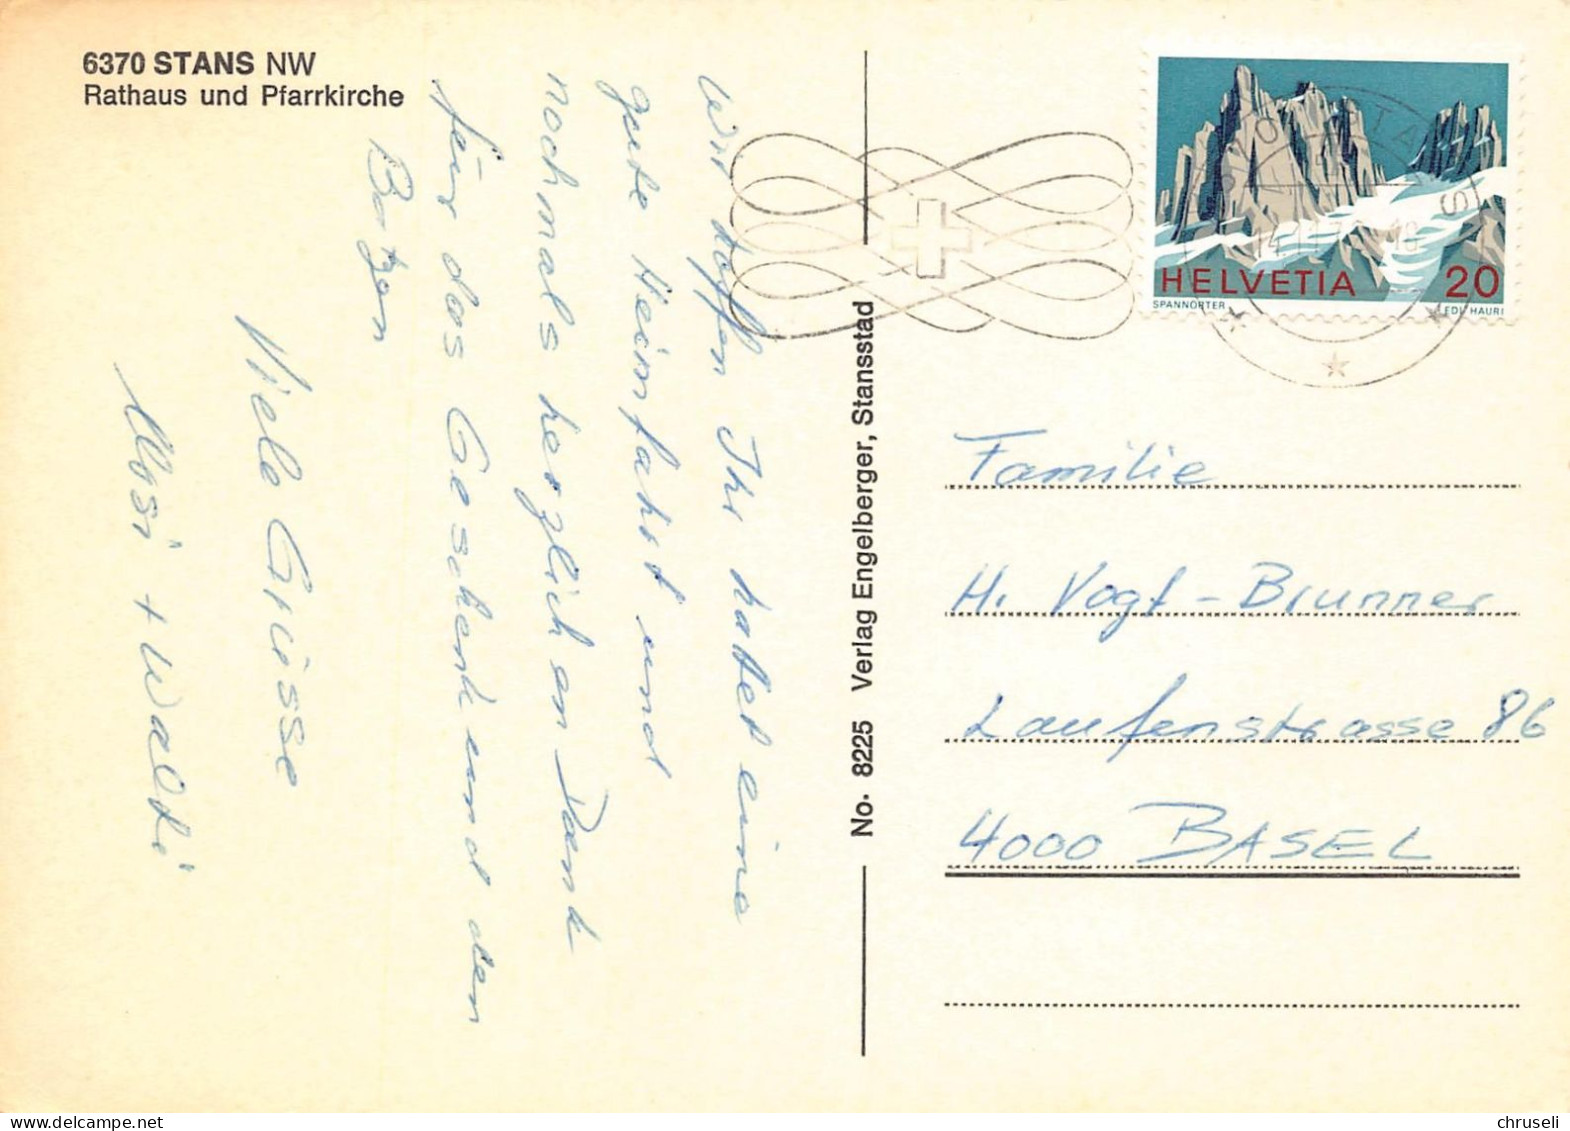 6370 STANS NW
Rathaus und Pfarrkirche
Wir hoffen Ihr hattet eine
gute Heimfahrt und
nochmals herzlichen Dank
für das Geschenk und den
Batzen
Viele Grüsse
+ Walti
No. 8225 Verlag Engelberger, Stansstad
HELVETIA 20
SPANNÖRTER EDI HAURI
Familie
H. Vogt-Brunner
Laufenstrasse 86
4000 BASEL
chruseli